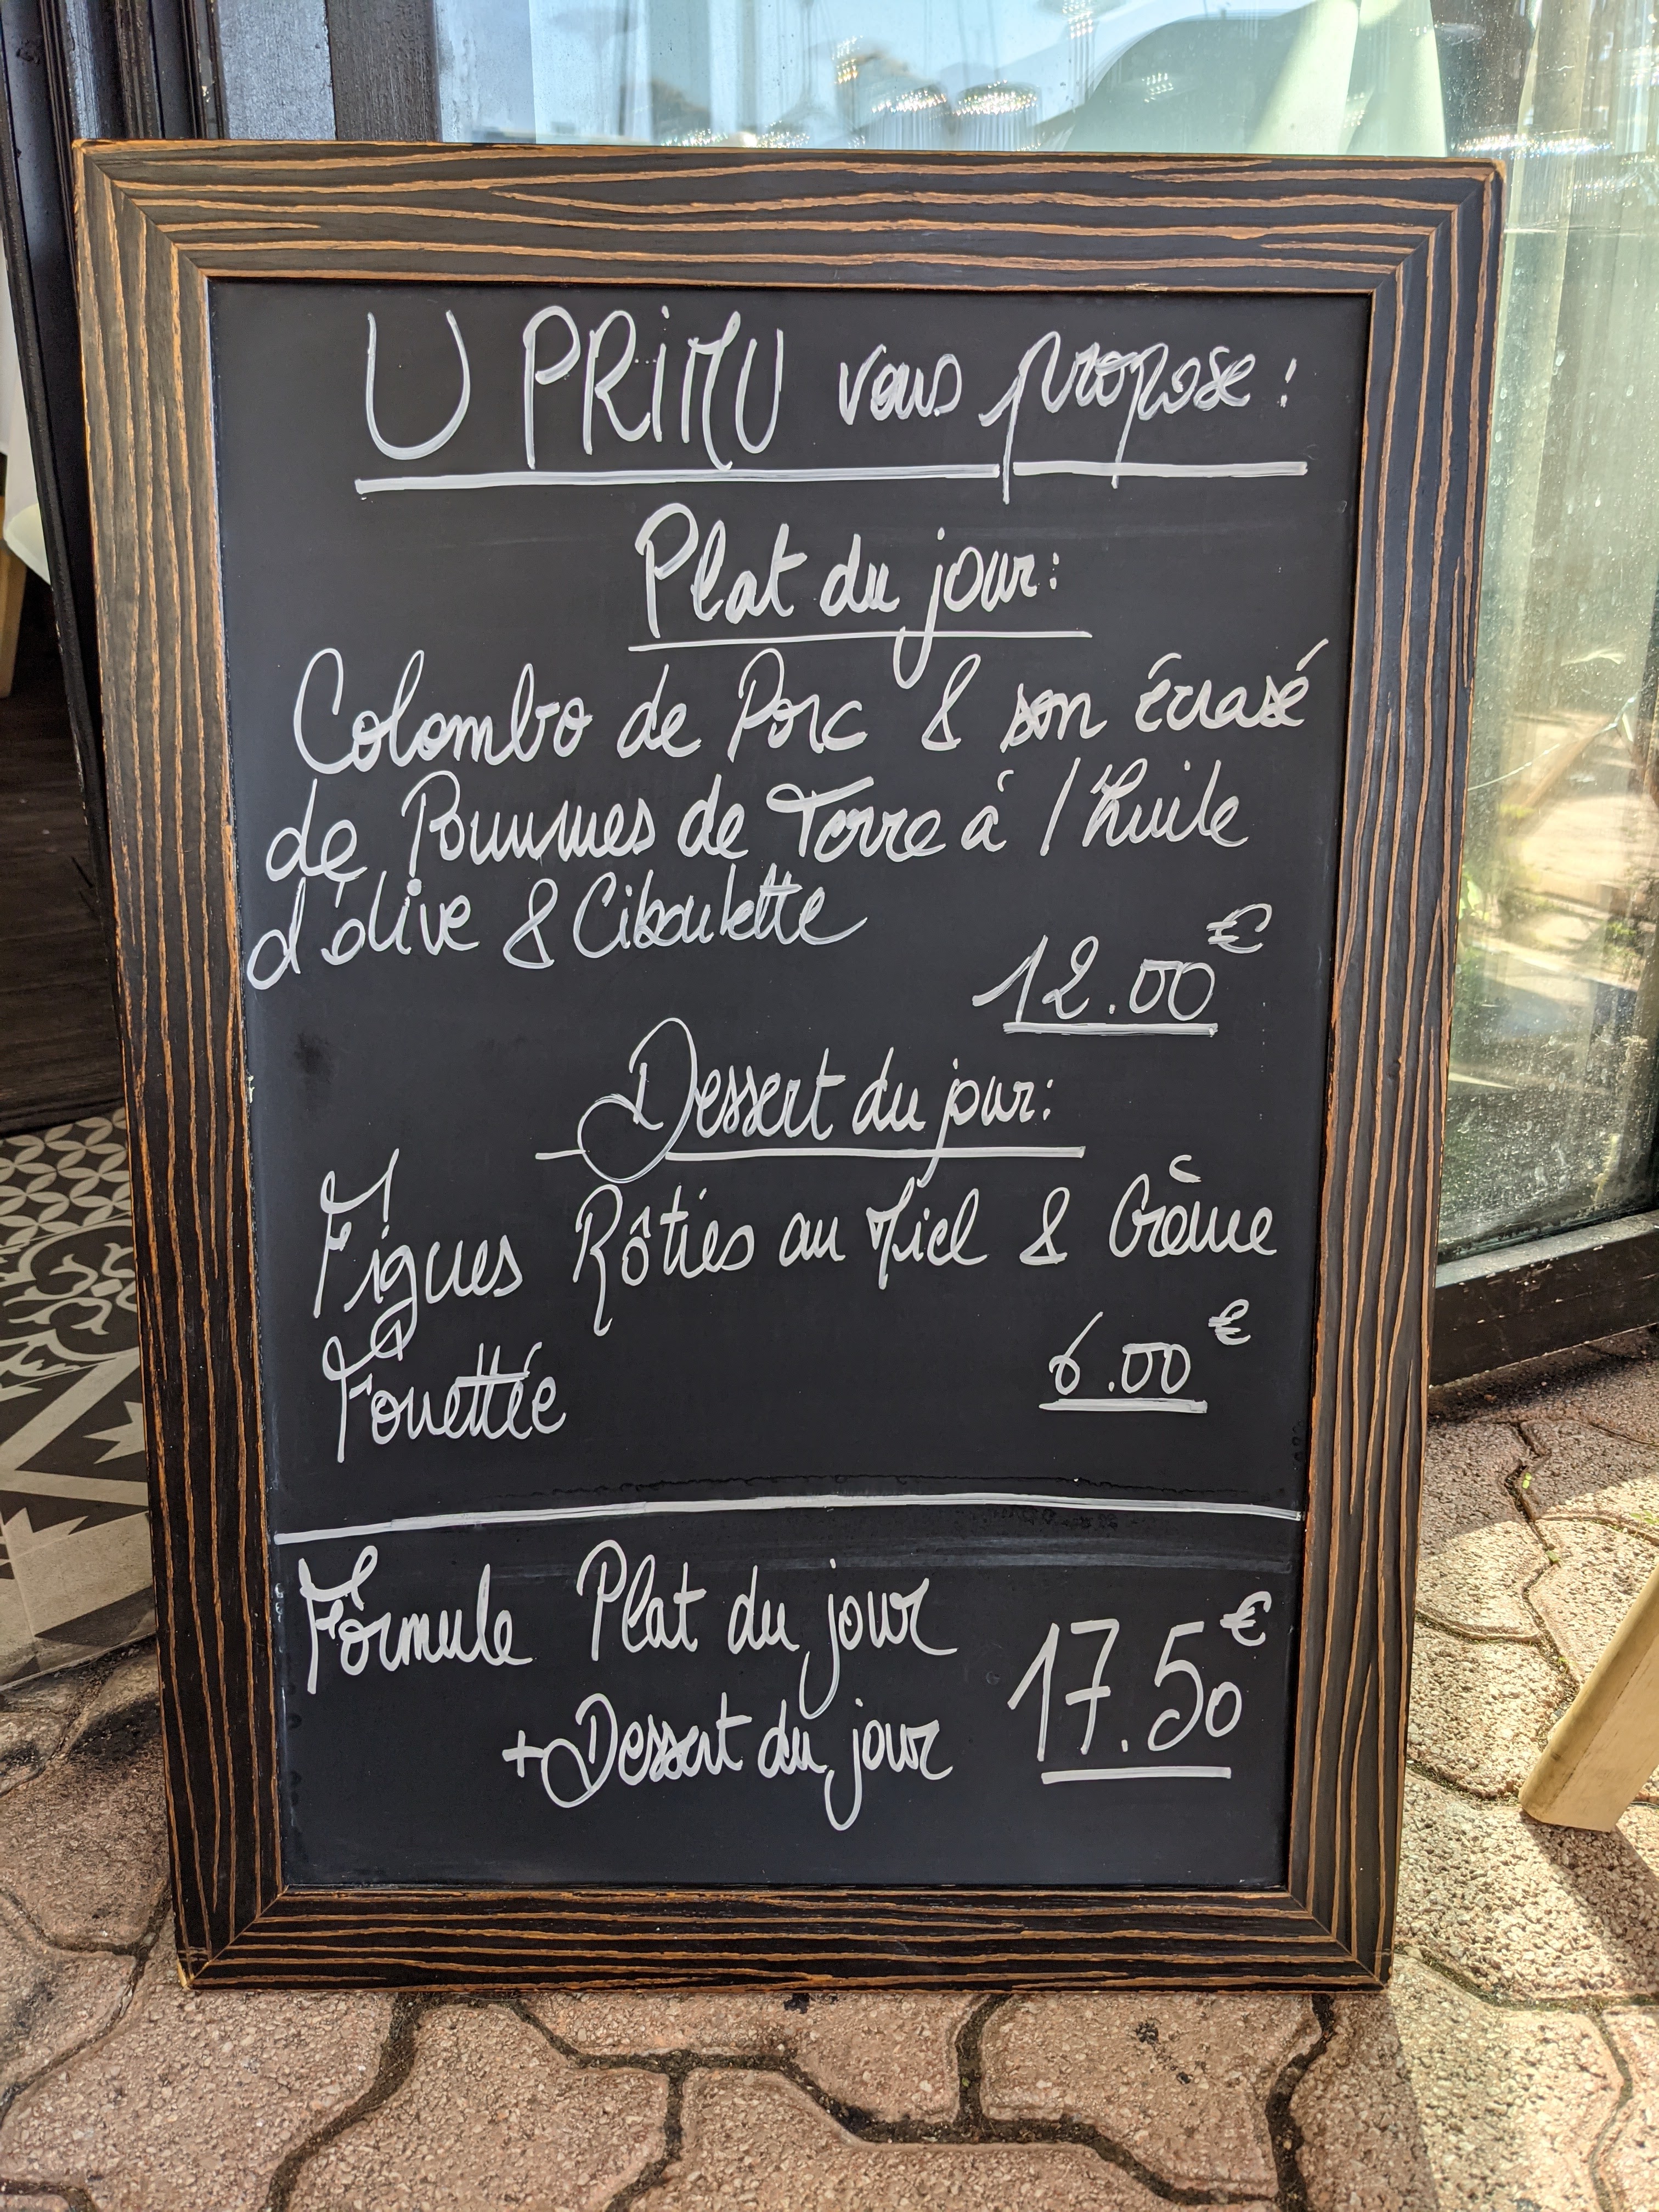 U PRiMU vous propose :
Plat du jour :
Colombo de Porc & son écrasé
de Pommes de Terre à l'huile
d'olive & Ciboulette
12.00€
Dessert du jour :
Figues Rôties au Miel & Crème
Fouettée
6.00€
Formule Plat du jour
+ Dessert du jour
17.50€